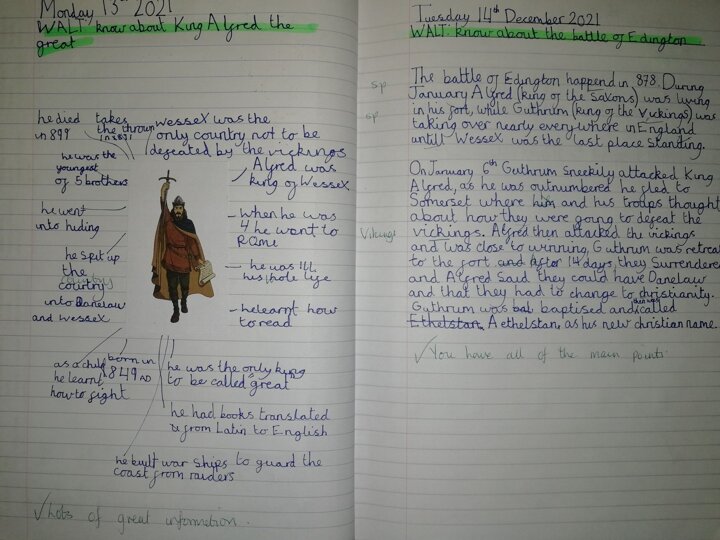 Monday 13th 2021
WALT: know about King Alfred the
great
he died
in 899
takes
the thrown
in 871
Wessex was the
only country not to be
defeated by the vickings
he was the
youngest
of 5 brothers
Alfred was
king of Wessex
he went
into hiding
when he was
4 he want to
Rome
he split up
the
country
into Danelaw
and Wessex
he was ill
his hole life
he learnt how
to read
as a child
he learnt
how to fight
born in
849 AD
he was the only king
to be called "great"
he had books translated
from Latin to English
he built war ships to guard the
coast from raiders
✓ Lots of great information.
Tuesday 14th December 2021
WALT: know about the battle of Edington
sp
The battle of Edington happend in 878. During
January Alfred (king of the Saxons) was living
sp
in his fort, while Guthrum (king of the Vickings) was
taking over nearly everywhere in England
untill Wessex was the last place standing.
On January 6th Guthrum sneekily attacked King
Alfred, as he was outnumbered he fled to
Somerset where him and his troops thought
about how they were going to defeat the
Vikings
vickings. Alfred then attacked the vickings
and was close to winning, Guthrum was retreat
to the fort and After 14 days, they Surrendered
and Alfred said they could have Danelaw
and that they had to change to christianity.
Guthrum was bat baptised and then was called
Ethelstan, Aethelstan, as his new christian name.
✓ You have all of the main points.